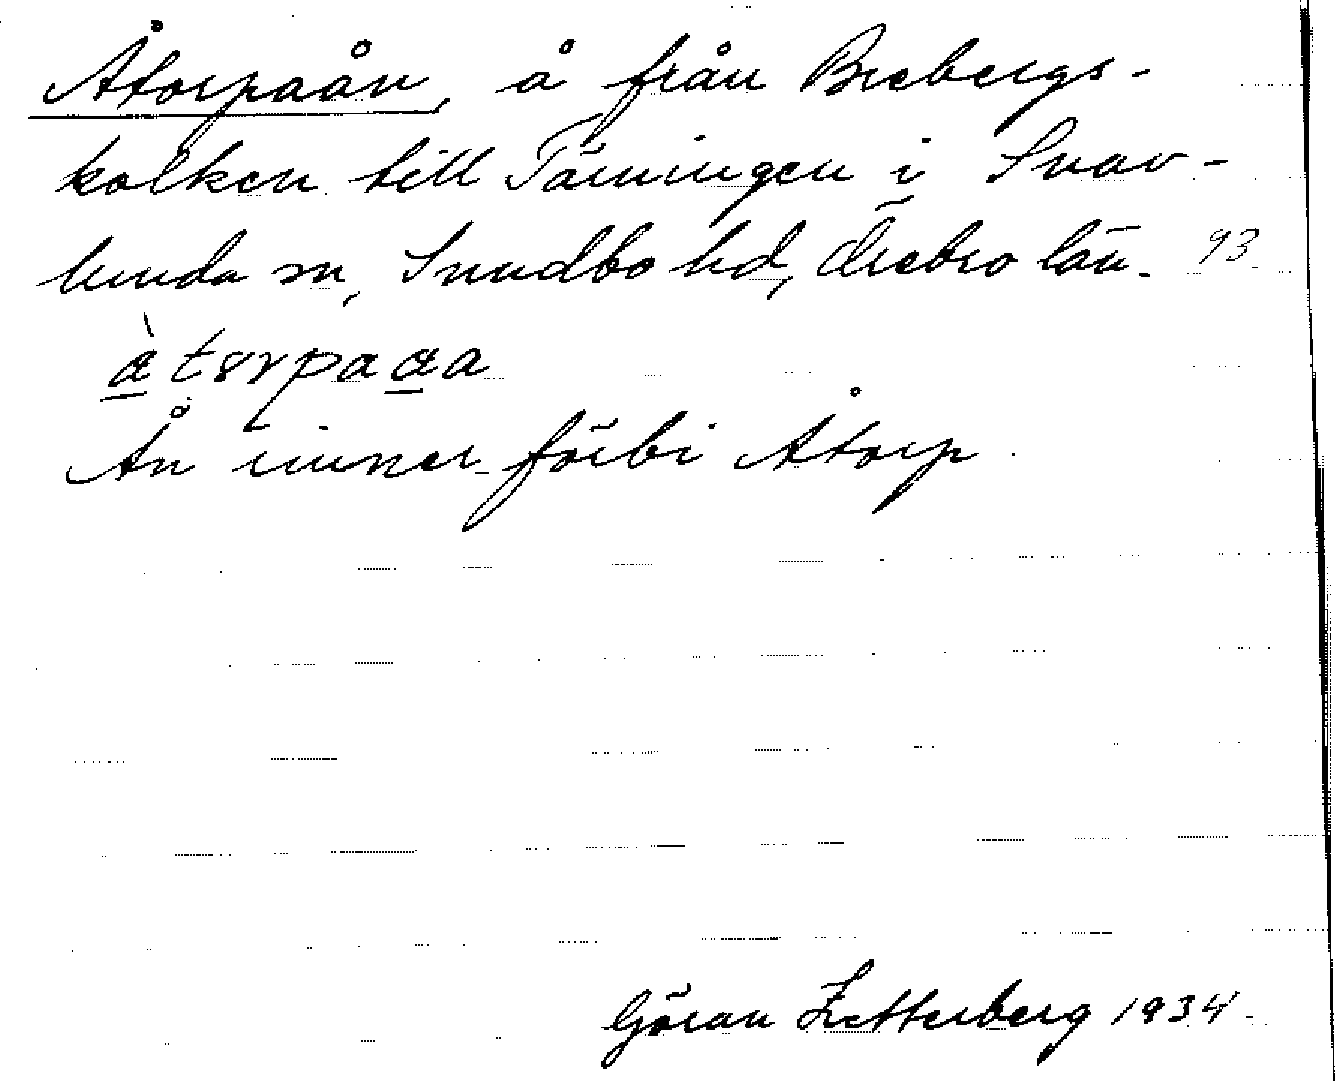 Åtorpaån, å från Brebergs-
kolken till Täftningen i Snav-
lunda sn, Sundbo hd, Örebro län. 93
Ån rinner förbi Åtorp.
Göran Zetterberg 1934